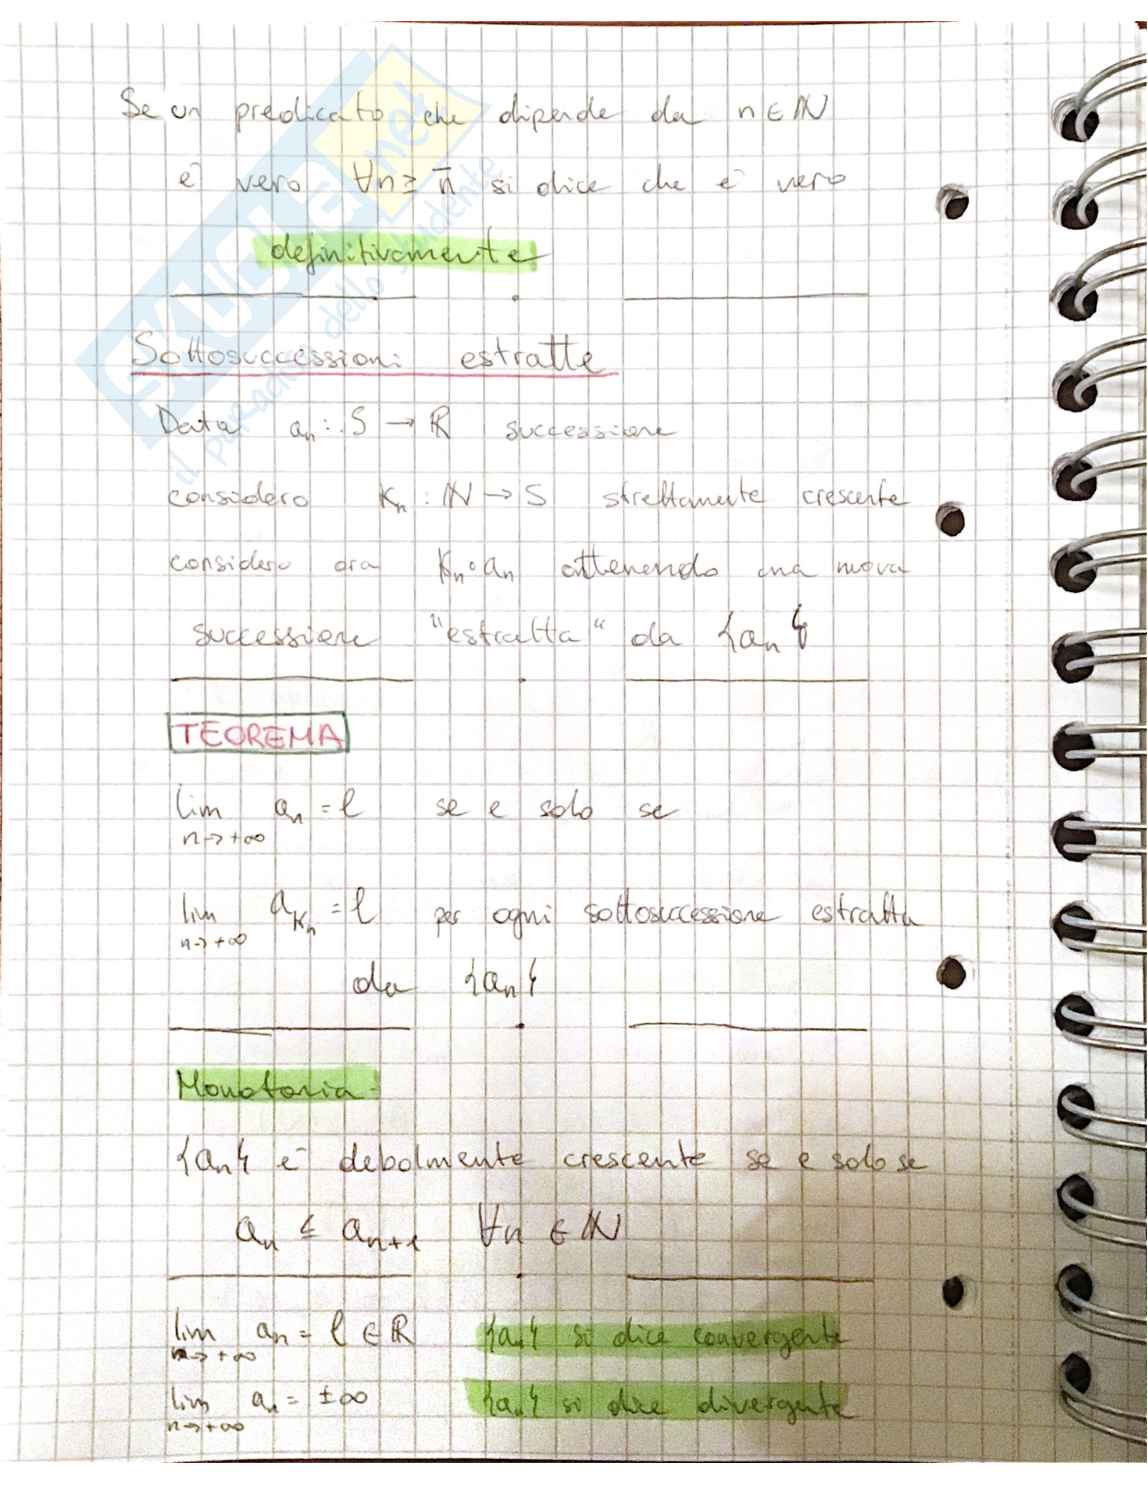 Se un predicato che dipende da n ∈ ℕ
è vero ∀n ≥ n̄ si dice che è vero
definitivamente
Sottosuccessioni estratte
Data aₙ : S → ℝ successione
considero Kₙ : ℕ → S strettamente crescente
considero ora Kₙ∘aₙ ottenendo una nuova
successione "estratta" da {aₙ}
TEOREMA
lim aₙ = ℓ se e solo se
n→+∞
lim a_Kₙ = ℓ per ogni sottosuccessione estratta
n→+∞
da {aₙ}
Monotonia
{aₙ} è debolmente crescente se e solo se
aₙ ≤ aₙ₊₁ ∀n ∈ ℕ
lim aₙ = ℓ ∈ ℝ {aₙ} si dice convergente
n→+∞
lim aₙ = ±∞ {aₙ} si dice divergente
n→+∞
SKUOLA.net
il paradiso dello studente